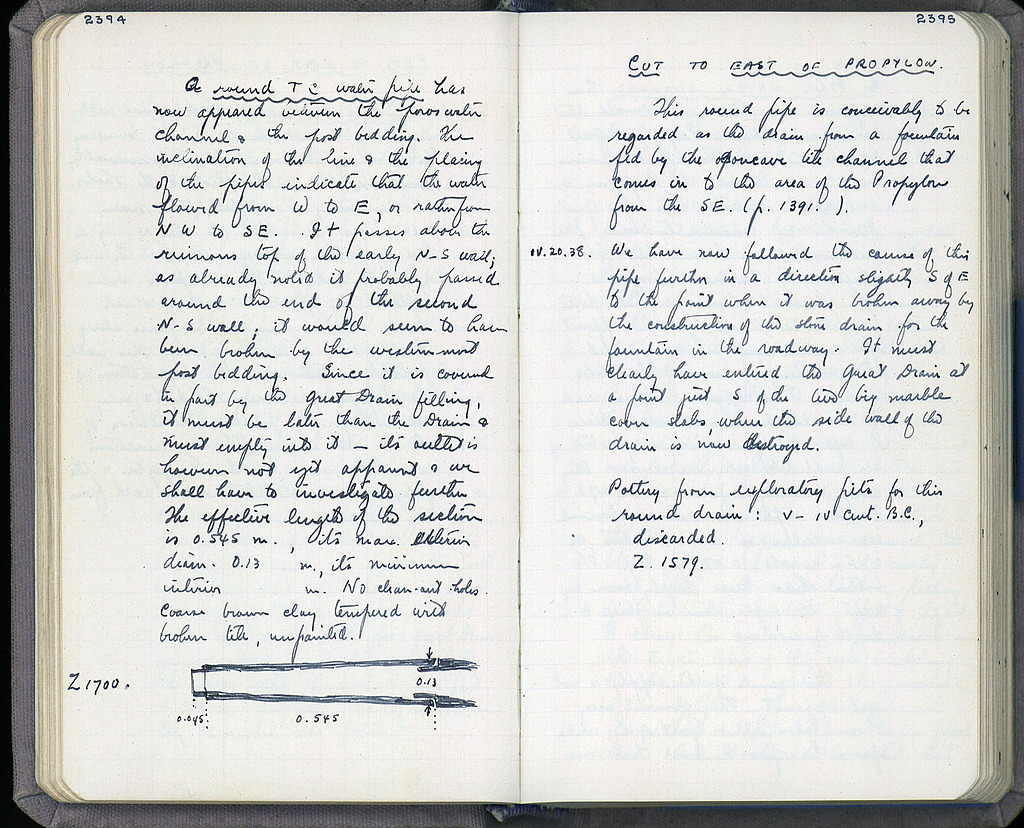 2394
A round TC water pipe has
now appeared between the poros water
channel & the post bedding. The
inclination of the line & the placing
of the pipes indicate that the water
flowed from W to E, or rather from
NW to SE. It passes above the
ruinous top of the early N-S wall;
as already noted it probably passed
around the end of the second
N-S wall; it would seem to have
been broken by the westernmost
post bedding. Since it is covered
in part by the Great Drain filling,
it must be later than the Drain &
must empty into it – its outlet is
however not yet apparent & we
shall have to investigate further
The effective length of the section
is 0.545 m., its max. exterior
diam. 0.13 m., its minimum
interior m. No clean-out holes.
Coarse brown clay tempered with
broken tile, unpainted.
Z 1700.
0.13
0.045
0.545
2395
CUT TO EAST OF PROPYLON.
This round pipe is conceivably to be
regarded as the drain from a fountain
fed by the concave tile channel that
comes in to the area of the Propylon
from the SE. (p. 1391. ).
IV.20.38. We have now followed the course of this
pipe further in a direction slightly S of E
to the point where it was broken away by
the construction of the stone drain for the
fountain in the roadway. It must
clearly have entered the Great Drain at
a point just S of the two big marble
cover slabs, where the side wall of the
drain is now destroyed.
Pottery from exploratory pits for this
round drain : V – IV cent. B.C.,
discarded.
Z. 1579.